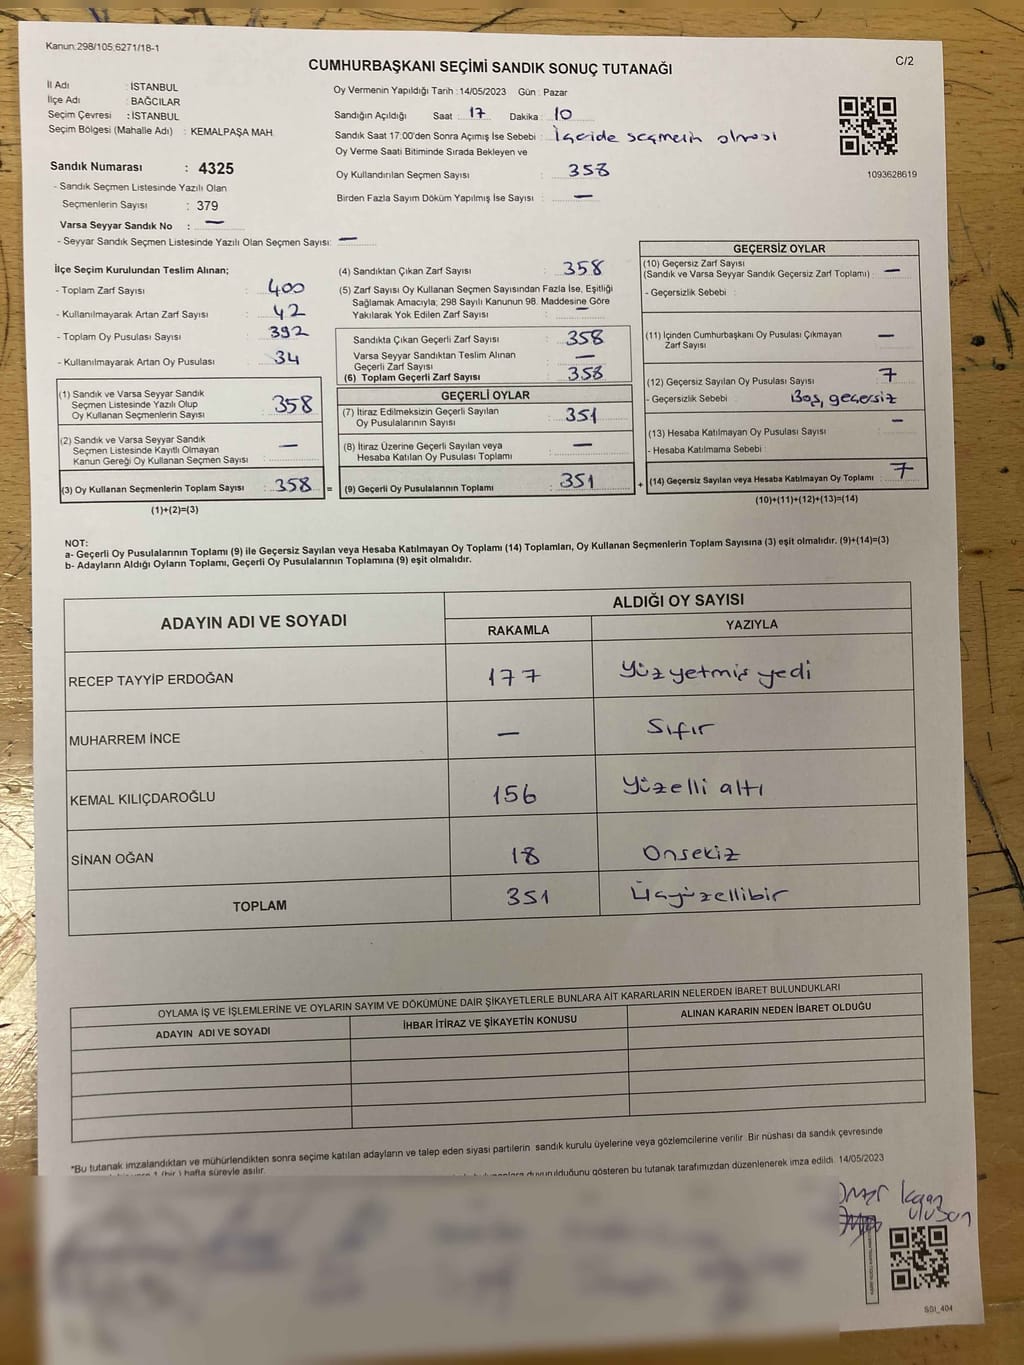 Kanun:298/105;6271/18-1
C/2
CUMHURBAŞKANI SEÇİMİ SANDIK SONUÇ TUTANAĞI
İl Adı : İSTANBUL
İlçe Adı : BAĞCILAR
Seçim Çevresi : İSTANBUL
Seçim Bölgesi (Mahalle Adı) : KEMALPAŞA MAH.
Sandık Numarası : 4325
- Sandık Seçmen Listesinde Yazılı Olan
Seçmenlerin Sayısı : 379
Varsa Seyyar Sandık No : —
- Seyyar Sandık Seçmen Listesinde Yazılı Olan Seçmen Sayısı: —
Oy Vermenin Yapıldığı Tarih :14/05/2023 Gün : Pazar
Sandığın Açıldığı Saat : 17 Dakika : 10
Sandık Saat 17:00'den Sonra Açımış İse Sebebi : İçeride seçmenin olması
Oy Verme Saati Bitiminde Sırada Bekleyen ve
Oy Kullandırılan Seçmen Sayısı : 358
Birden Fazla Sayım Döküm Yapılmış İse Sayısı : —
1093628619
İlçe Seçim Kurulundan Teslim Alınan;
- Toplam Zarf Sayısı : 400
- Kullanılmayarak Artan Zarf Sayısı : 42
- Toplam Oy Pusulası Sayısı : 392
- Kullanılmayarak Artan Oy Pusulası : 34
(1) Sandık ve Varsa Seyyar Sandık
Seçmen Listesinde Yazılı Olup
Oy Kullanan Seçmenlerin Sayısı : 358
(2) Sandık ve Varsa Seyyar Sandık
Seçmen Listesinde Kayıtlı Olmayan
Kanun Gereği Oy Kullanan Seçmen Sayısı : —
(3) Oy Kullanan Seçmenlerin Toplam Sayısı : 358 =
(1)+(2)=(3)
(4) Sandıktan Çıkan Zarf Sayısı : 358
(5) Zarf Sayısı Oy Kullanan Seçmen Sayısından Fazla İse, Eşitliği
Sağlamak Amacıyla; 298 Sayılı Kanunun 98. Maddesine Göre
Yakılarak Yok Edilen Zarf Sayısı : —
Sandıkta Çıkan Geçerli Zarf Sayısı : 358
Varsa Seyyar Sandıktan Teslim Alınan
Geçerli Zarf Sayısı : —
(6) Toplam Geçerli Zarf Sayısı : 358
GEÇERLİ OYLAR
(7) İtiraz Edilmeksizin Geçerli Sayılan
Oy Pusulalarının Sayısı : 351
(8) İtiraz Üzerine Geçerli Sayılan veya
Hesaba Katılan Oy Pusulası Toplamı : —
(9) Geçerli Oy Pusulalarının Toplamı : 351 +
GEÇERSİZ OYLAR
(10) Geçersiz Zarf Sayısı
(Sandık ve Varsa Seyyar Sandık Geçersiz Zarf Toplamı) : —
- Geçersizlik Sebebi :
(11) İçinden Cumhurbaşkanı Oy Pusulası Çıkmayan
Zarf Sayısı : —
(12) Geçersiz Sayılan Oy Pusulası Sayısı : 7
- Geçersizlik Sebebi : Boş, geçersiz
(13) Hesaba Katılmayan Oy Pusulası Sayısı : —
- Hesaba Katılmama Sebebi :
(14) Geçersiz Sayılan veya Hesaba Katılmayan Oy Toplamı : 7
(10)+(11)+(12)+(13)=(14)
NOT:
a- Geçerli Oy Pusulalarının Toplamı (9) ile Geçersiz Sayılan veya Hesaba Katılmayan Oy Toplamı (14) Toplamları, Oy Kullanan Seçmenlerin Toplam Sayısına (3) eşit olmalıdır. (9)+(14)=(3)
b- Adayların Aldığı Oyların Toplamı, Geçerli Oy Pusulalarının Toplamına (9) eşit olmalıdır.
ADAYIN ADI VE SOYADI
ALDIĞI OY SAYISI
RAKAMLA YAZIYLA
RECEP TAYYİP ERDOĞAN 177 Yüzyetmiş yedi
MUHARREM İNCE — Sıfır
KEMAL KILIÇDAROĞLU 156 Yüzelli altı
SİNAN OĞAN 18 Onsekiz
TOPLAM 351 Üçyüzellibir
OYLAMA İŞ VE İŞLEMLERİNE VE OYLARIN SAYIM VE DÖKÜMÜNE DAİR ŞİKAYETLERLE BUNLARA AİT KARARLARIN NELERDEN İBARET BULUNDUKLARI
ADAYIN ADI VE SOYADI İHBAR İTİRAZ VE ŞİKAYETİN KONUSU ALINAN KARARIN NEDEN İBARET OLDUĞU
*Bu tutanak imzalandıktan ve mühürlendikten sonra seçime katılan adayların ve talep eden siyasi partilerin sandık kurulu üyelerine veya gözlemcilerine verilir. Bir nüshası da sandık çevresinde
1 (bir) hafta süreyle asılır.
duyurulduğunu gösteren bu tutanak tarafımızdan düzenlenerek imza edildi. 14/05/2023
SGI_404